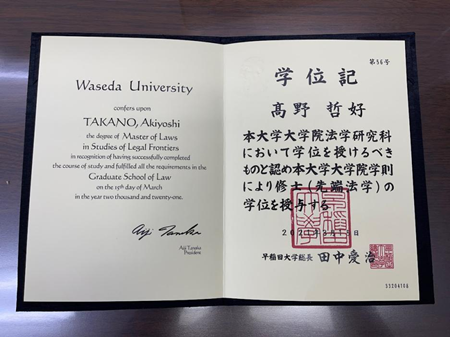 Waseda University
confers upon
TAKANO, Akiyoshi
the degree of Master of Laws
in Studies of Legal Frontiers
in recognition of having successfully completed
the course of study and fulfilled all the requirements in the
Graduate School of Law
on the 15th day of March
in the year two thousand and twenty-one.
Aiji Tanaka
Aiji Tanaka
President
第56号
学位記
髙野 哲好
本大学大学院法学研究科
において学位を授けるべき
ものと認め本大学大学院学則
により修士(先端法学)の
学位を授与する
早稲田大学総長 田中愛治